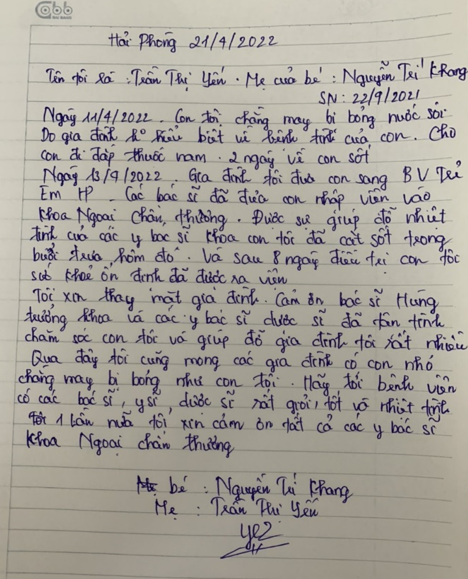 Cabb
Hải Phòng 21/4/2022
Tên tôi là : Trần Thị Yến . Mẹ của bé : Nguyễn Trí Khang
SN : 22/9/2021
Ngày 11/4/2022. Con tôi chẳng may bị bỏng nước sôi
Do gia đình ko hiểu biết về bệnh tình của con. Cho
con đi đắp thuốc nam. 2 ngày về con sốt
Ngày 13/4/2022. Gia đình tôi đưa con sang BV Trẻ
Em HP. Các bác sĩ đã đưa con nhập viện vào
khoa Ngoại Chấn, thương. Được sự giúp đỡ nhiệt
tình của các y bác sĩ khoa con tôi đã cắt sốt trong
buổi trưa hôm đó. Và sau 8 ngày điều trị con tôi
sức khoẻ ổn định đã được ra viện
Tôi xin thay mặt gia đình. Cảm ơn bác sĩ Hùng
trưởng khoa và các y bác sĩ dược sĩ đã tận tình
chăm sóc con tôi và giúp đỡ gia đình tôi rất nhiều
Qua đây tôi cũng mong các gia đình có con nhỏ
chẳng may bị bỏng như con tôi. Hãy tới bệnh viện
có các bác sĩ, y sĩ, dược sĩ rất giỏi, tốt và nhiệt tình
1 lần nữa tôi xin cảm ơn tất cả các y bác sĩ
khoa Ngoại chấn thương
bé : Nguyễn Trí Khang
Mẹ : Trần Thị Yến